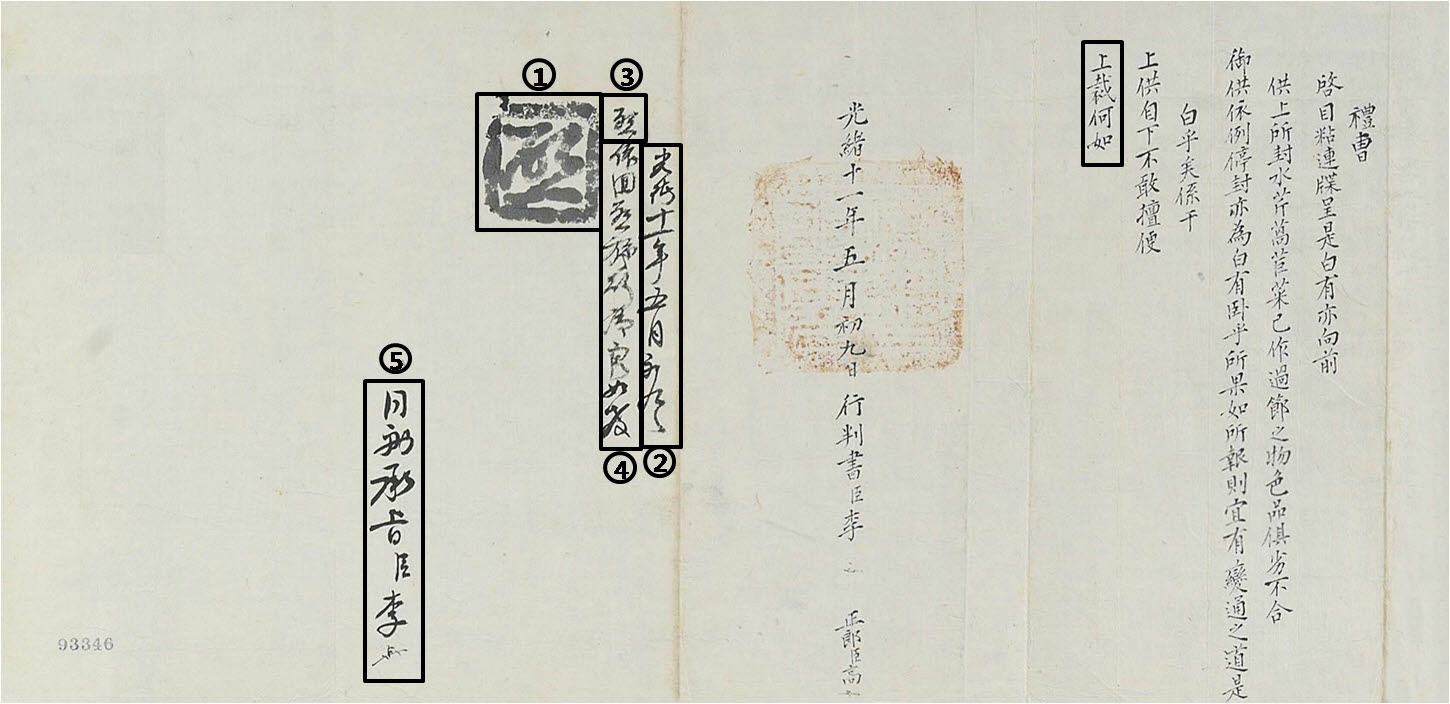 禮曹
啓目粘連牒呈是白有亦向前
供上所封水芹萵苣菜已作過節之物色品俱劣不合
御供依例停封亦為白有卧乎所果如所報則宜有變通之道是
白乎矣係干
上供自下不敢擅便
上裁何如
光緒十一年五月初九日行判書臣李
正郎臣高
③
啓
②
光緒十一年五月初九日
④
依回啓施行為良如教
①
啓
⑤
同副承旨臣李
93346